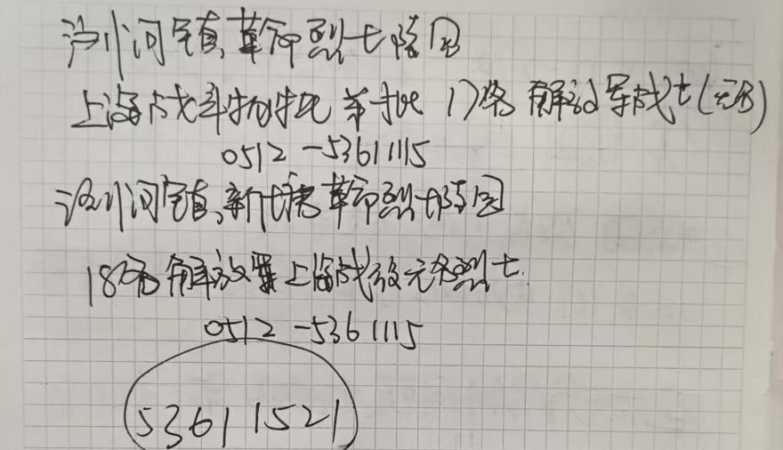 浏河镇革命烈士陵园
上海战斗牺牲 第一批 17名 解放军战士(无名)
0512-53611115
浏河镇新塘革命烈士陵园
18名 解放军上海战役无名烈士
0512-53611115
53611521